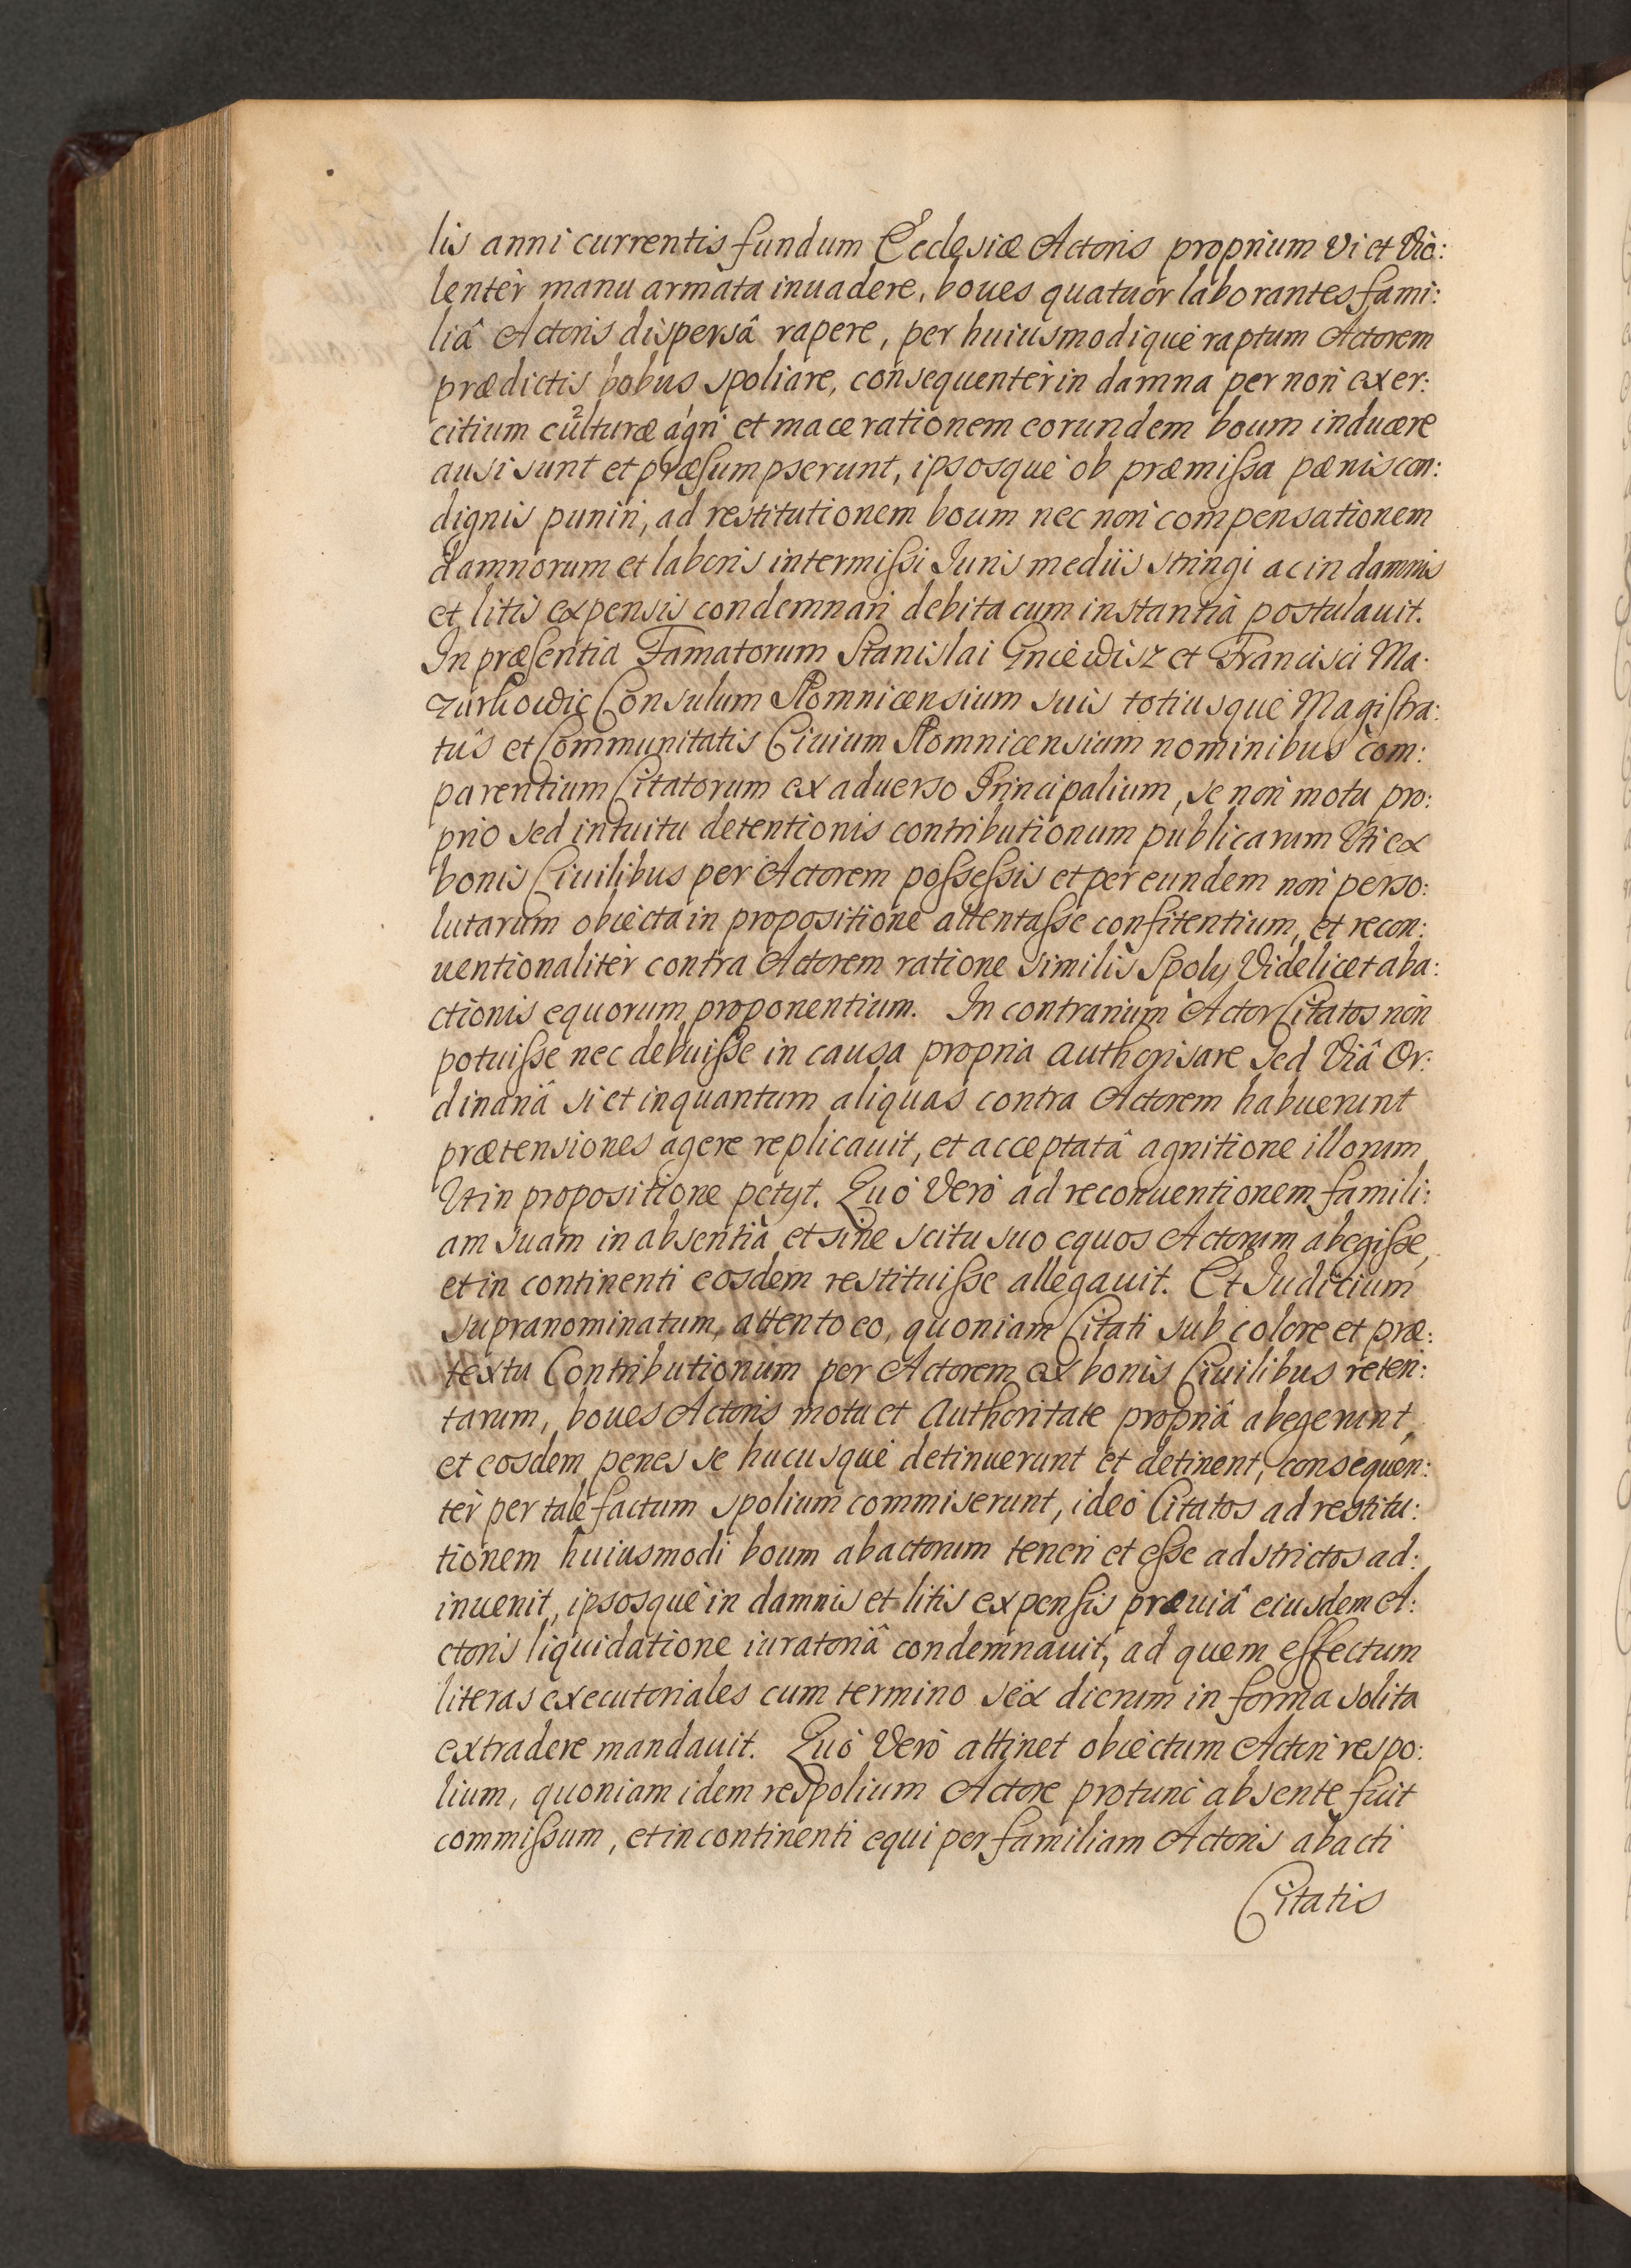 lis anni currentis fundum Ecclesiæ Actoris proprium vi et Vio:
lentèr manu armata inuadere, boues quatuor laborantes fami:
liâ Actoris dispersâ rapere, per huiusmodique raptum Actorem
prædictis bobus spoliare, consequentèr in damna per non exer:
citium culturæ agri et macerationem eorundem boum inducere
ausi sunt et præsumpserunt, ipsosque ob præmissa pænis con:
dignis puniri, ad restitutionem boum nec non compensationem
damnorum et laboris intermissi Iuris mediis stringi ac in damnis
et litis expensis condemnari debita cum instantia postulauit.
In præsentia Famatorum Stanislai Gniewisz et Francisci Ma:
zurkowic Consulum Słomnicensium suis totiusque Magistra:
tûs et Communitatis Ciuium Słomnicensium nominibus com:
parentium Citatorum ex aduerso Principalium, se non motu pro:
prio sed intuitu detentionis contributionum publicarum Vti ex
bonis Ciuilibus per Actorem possessis et per eundem non perso:
lutarum obiecta in propositione attentasse confitentium, et recon:
uentionalitèr contra Actorem ratione similis Spolij Videlicet aba:
ctionis equorum proponentium. In contrarium Actor Citatos non
potuisse nec debuisse in causa propria authorisare sed Viâ Or:
dinariâ si et inquantum aliquas contra Actorem habuerunt
prætensiones agere replicauit, et acceptatâ agnitione illorum
Vt in propositione petyt. Quò Verò ad reconuentionem famili:
am suam in absentia et sine scitu suo equos Actorum abegisse,
et in continenti eosdem restituisse allegauit. Et Iudicium
supranominatum, attento eo, quoniam Citati sub colore et præ:
textu Contributionum per Actorem ex bonis Ciuilibus reten:
tarum, boues Actoris motu et Authoritate propriâ abegerunt,
et eosdem penes se hucusque detinuerunt et detinent, consequen:
tèr per tale factum spolium commiserunt, ideò Citatos ad restitu:
tionem huiusmodi boum abactorum teneri et esse adstrictos ad:
inuenit, ipsosque in damnis et litis expensis præuiâ eiusdem A:
ctoris liquidatione iuratoriâ condemnauit, ad quem effectum
literas executoriales cum termino sex dierum in forma solita
extradere mandauit. Quò Verò attinet obiectum Actori respo:
lium, quoniam idem respolium Actore protunc absente fuit
commissum, et in continenti equi per familiam Actoris abacti
Citatis